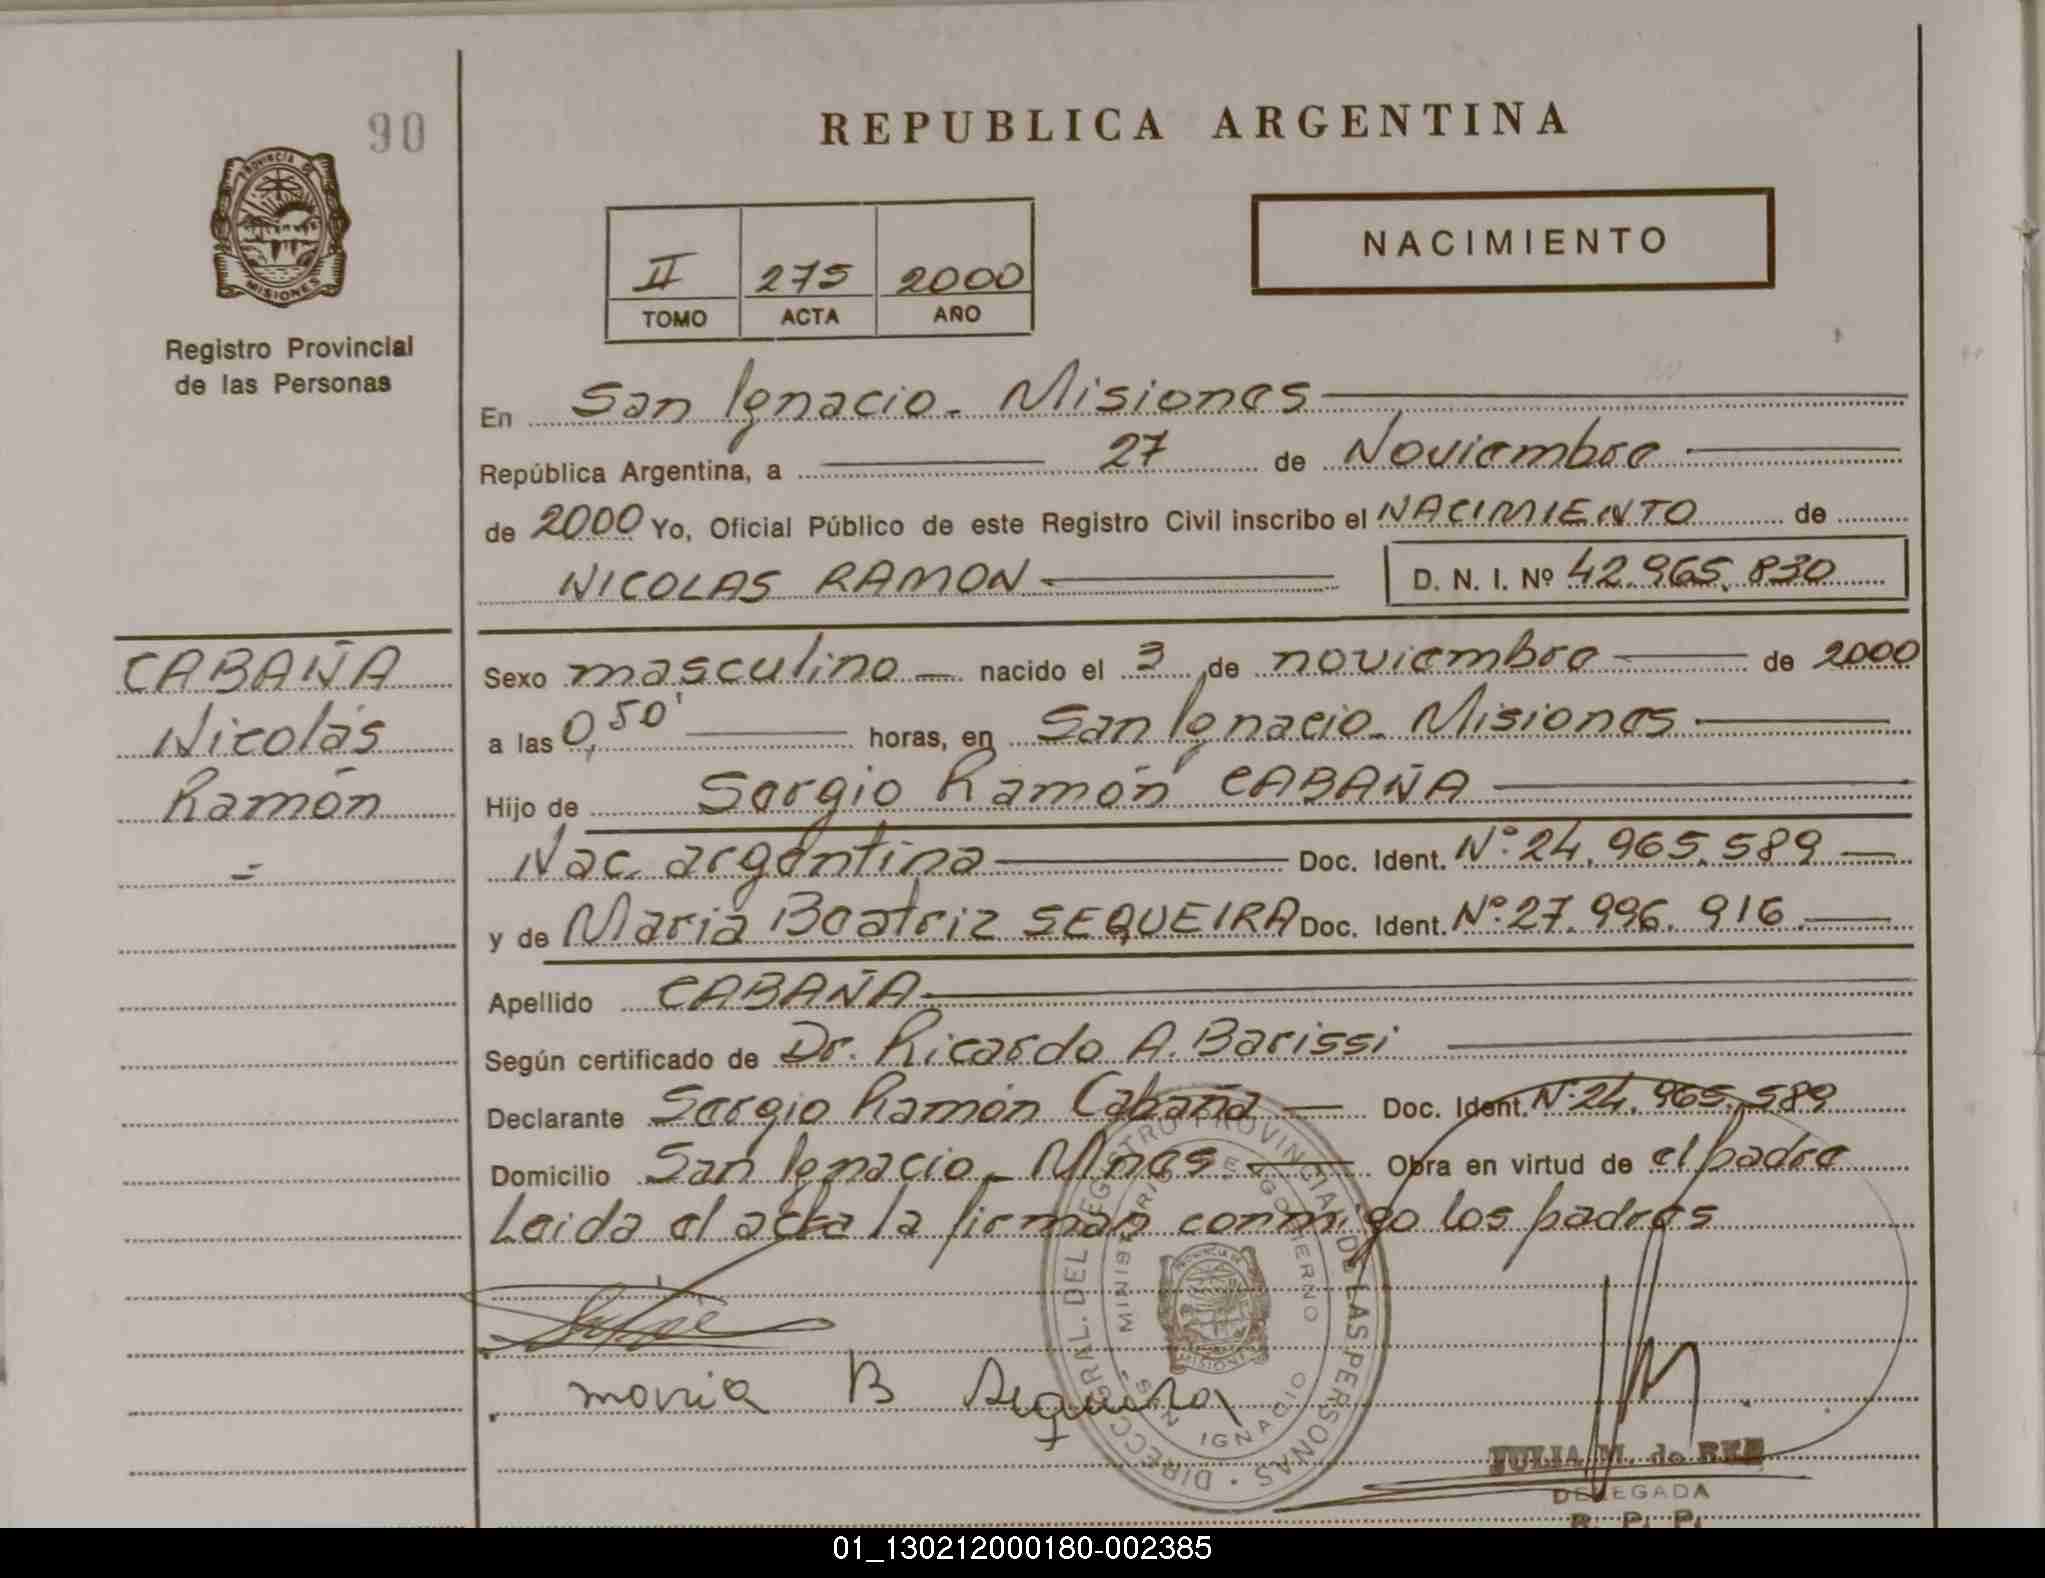 90
REPUBLICA ARGENTINA
PROVINCIA DE
MISIONES
Registro Provincial
de las Personas
II 275 2000
TOMO ACTA AÑO
NACIMIENTO
En San Ignacio - Misiones
República Argentina, a 27 de Noviembre
de 2000 Yo, Oficial Público de este Registro Civil inscribo el NACIMIENTO de
NICOLAS RAMON D. N. I. Nº 42.965.830
CABAÑA
Nicolás
Ramón
Sexo masculino nacido el 3 de noviembre de 2000
a las 0,50' horas, en San Ignacio - Misiones
Hijo de Sergio Ramón CABAÑA
Nac. argentina Doc. Ident. Nº 24.965.589
y de María Beatriz SEQUEIRA Doc. Ident. Nº 27.996.916
Apellido CABAÑA
Según certificado de Dr. Ricardo A. Barissi
Declarante Sergio Ramón Cabaña Doc. Ident. Nº 24.965.589
Domicilio San Ignacio - Mnes Obra en virtud de el padre
Leida el acta la firman conmigo los padres
maria B Sequeira
DIRECC. GRAL. DEL REGISTRO PROVINCIAL DE LAS PERSONAS
MINISTERIO DE GOBIERNO
SAN IGNACIO
PROVINCIA DE
MISIONES
JULIA M. de
DELEGADA
R. P. P.
01_130212000180-002385